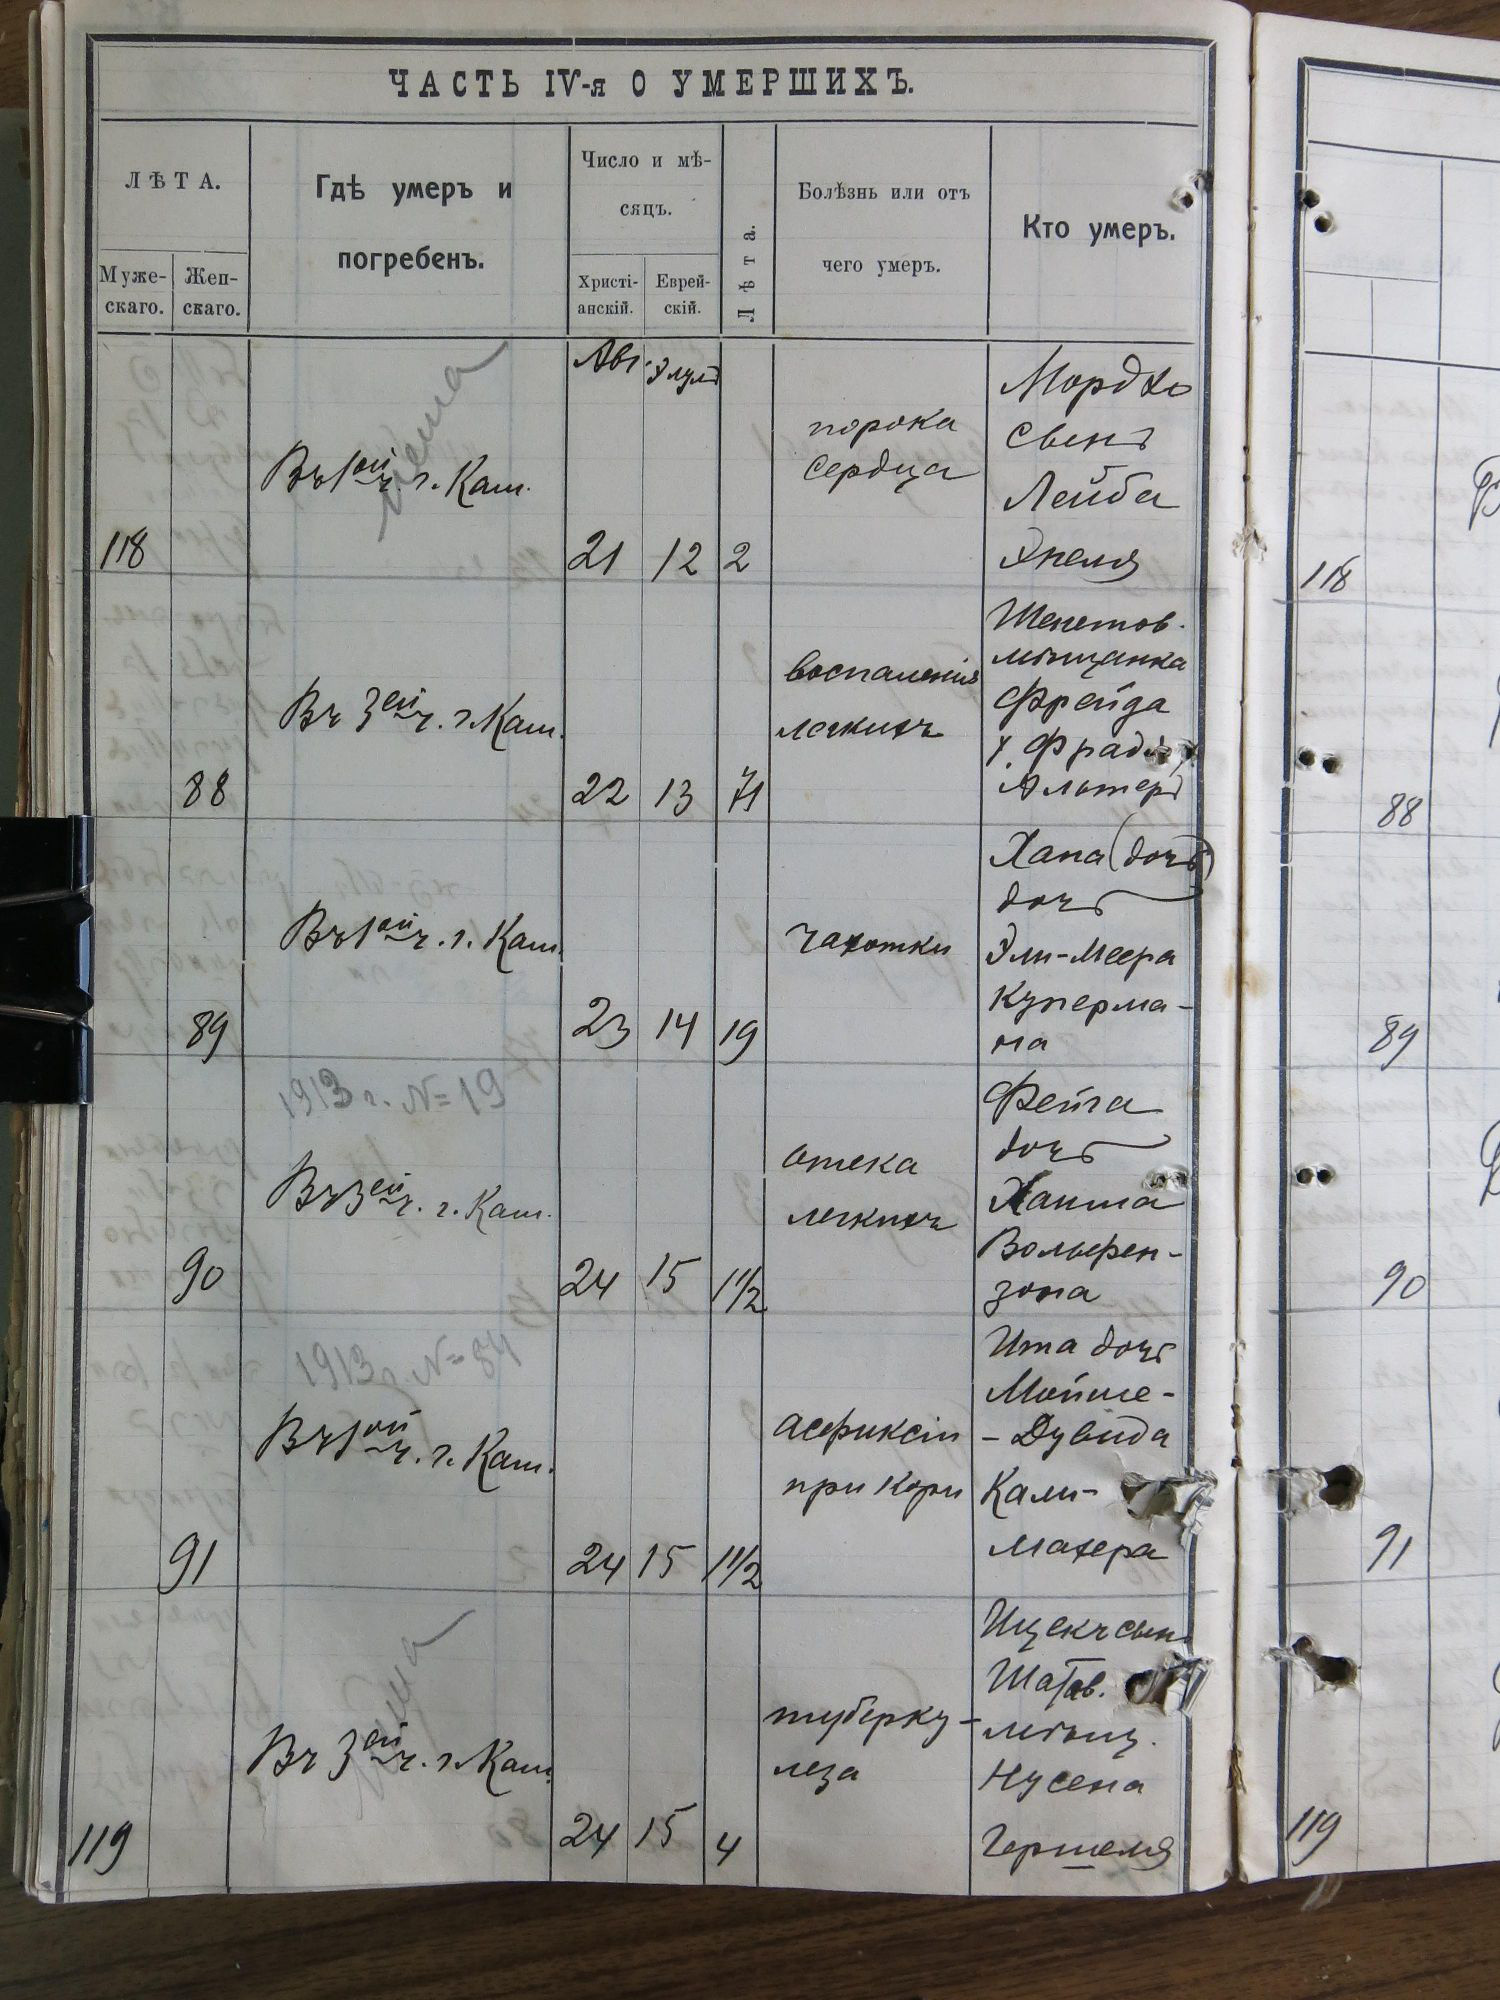 ЧАСТЬ IV-я О УМЕРШИХЪ.
ЛѢТА.
Муже-
скаго.
Жен-
скаго.
Гдѣ умеръ и
погребенъ.
Число и мѣ-
сяцъ.
Христі-
анскій.
Еврей-
скій.
Лѣта.
Болѣзнь или отъ
чего умеръ.
Кто умеръ.
118
Въ 1ой ч. г. Каш.
Авг.
Элулъ
21
12
2
порока
сердца
Мордхо
сынъ
Лейба
88
Въ 3ей ч. г. Каш.
22
13
71
воспаленія
легкихъ
мѣщанка
Фрейда
Альтеръ
89
Въ 1ой ч. г. Каш.
23
14
19
чахотки
Хана (дочь)
дочь
Эли-Меера
Куперма-
на
1913 г. N=19
90
Въ 3ей ч. г. Каш.
24
15
1 1/2
отека
легкихъ
Фейга
дочь
Хаима
Вольфен-
зона
1913 г. N=84
91
Въ 1ой ч. г. Каш.
24
15
1 1/2
асфиксіи
при кори
Ита дочь
Мойше-
-Дувида
Кали-
махера
119
Въ 3ей ч. г. Каш.
24
15
4
туберку-
леза
Ицекъ сынъ
мѣщ.
Нусена
Гершеля
118
88
89
90
91
119